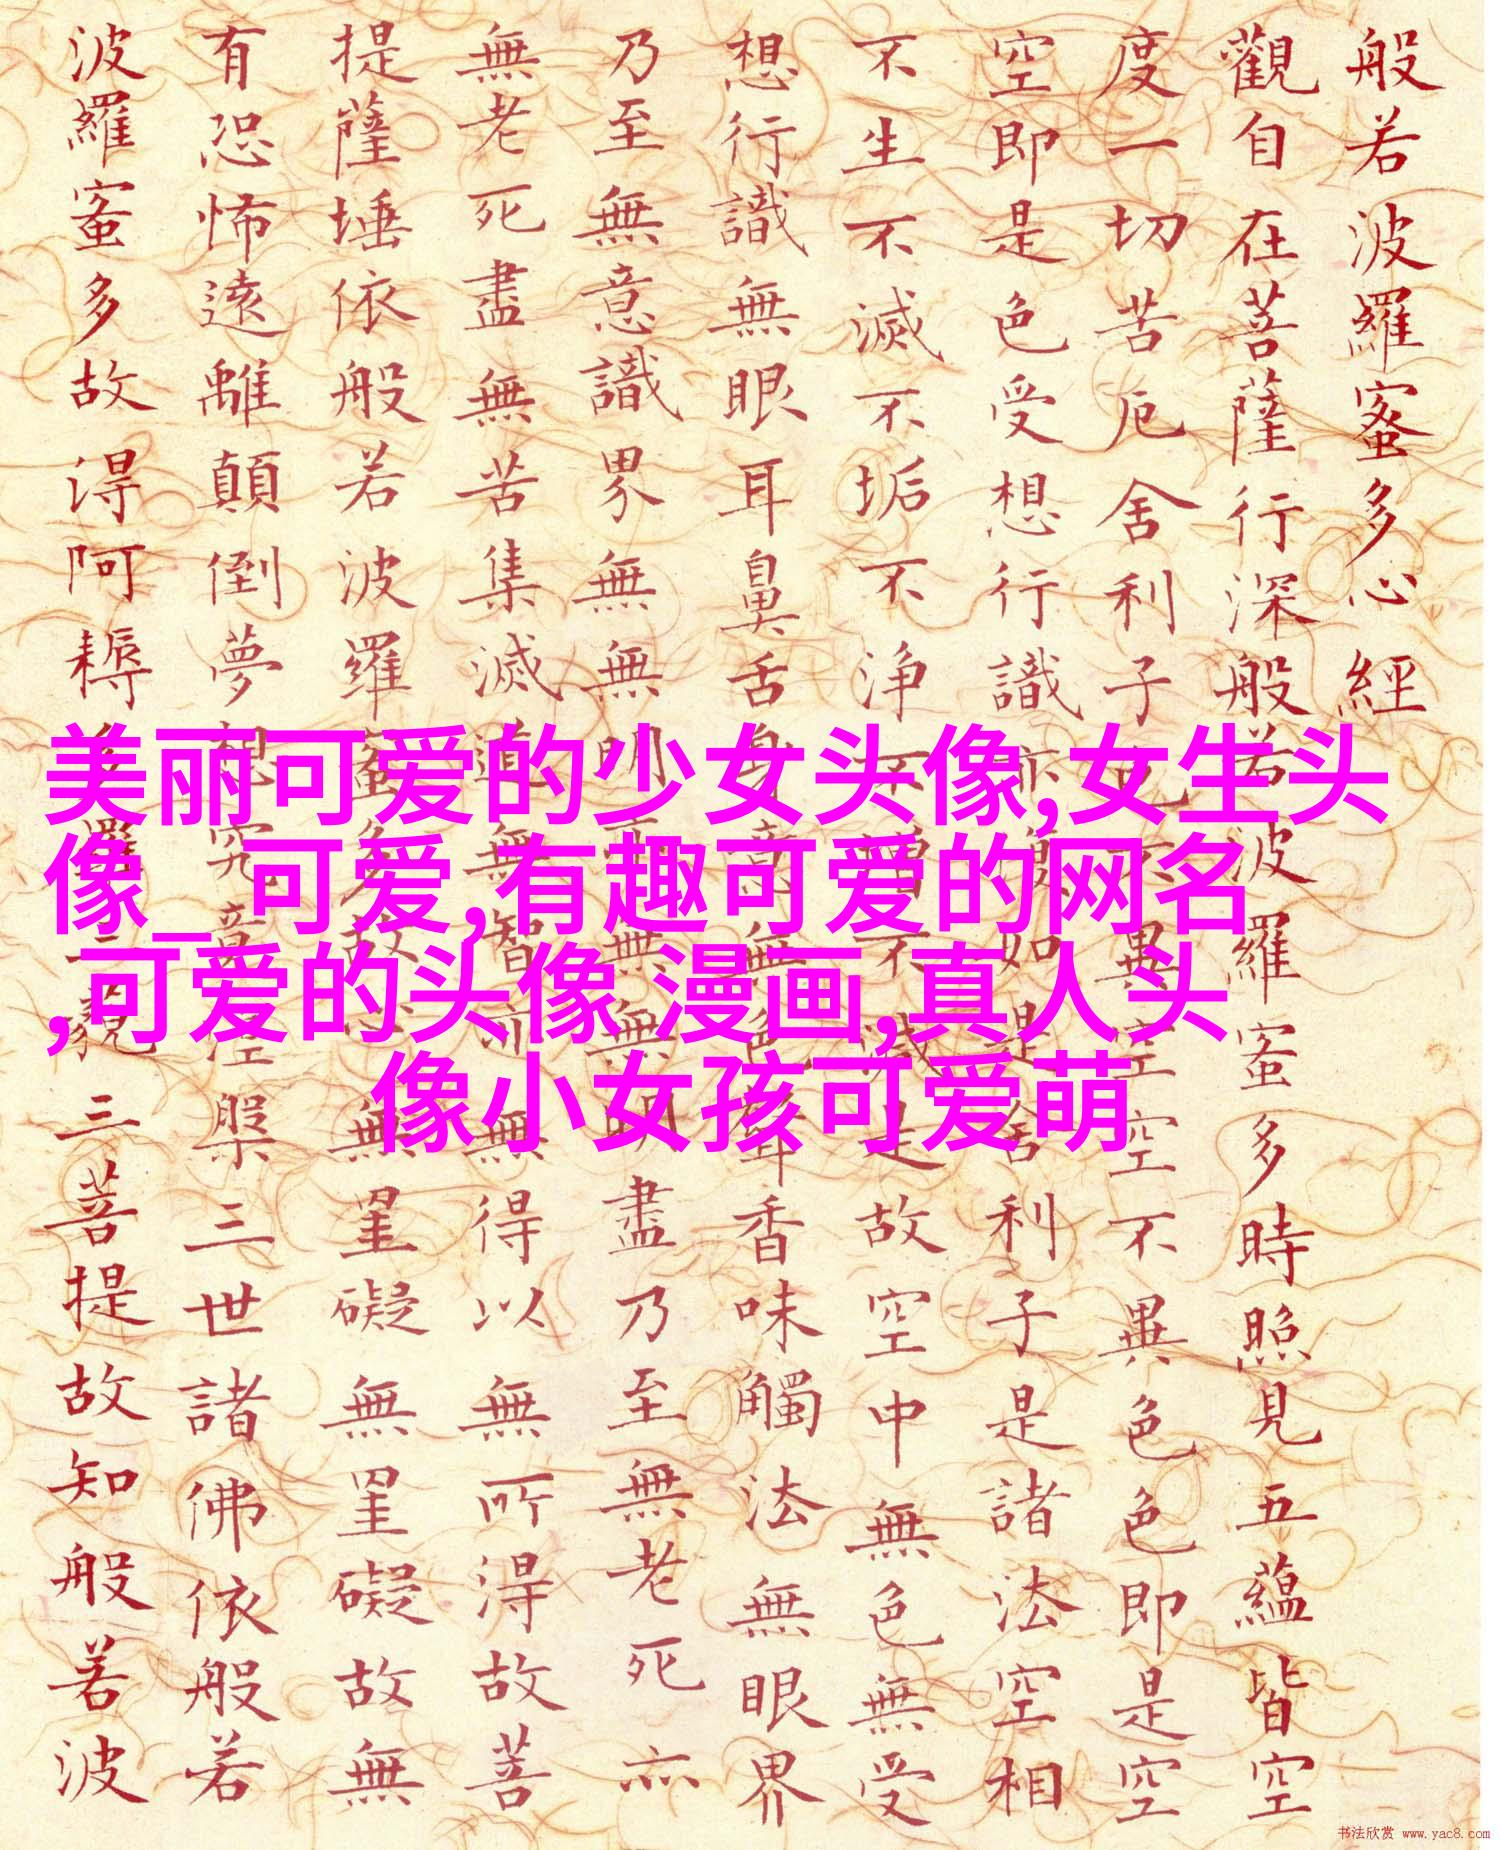 般若波羅蜜多心經
觀自在菩薩行深般若波羅蜜多時照見五蘊皆空
度一切苦厄舍利子色不異空空不異色色即是空
空即是色受想行識亦復如是舍利子是諸法空相
不生不滅不垢不淨不增不減是故空中無色無受
想行識無眼耳鼻舌身意無色聲香味觸法無眼界
乃至無意識界無無明亦無無明盡乃至無老死亦
無老死盡無苦集滅道無智亦無得以無所得故菩
提薩埵依般若波羅蜜多故心無罣礙無罣礙故無
有恐怖遠離顛倒夢想究竟涅槃三世諸佛依般若
波羅蜜多故得阿耨多羅三藐三菩提故知般若波
美丽可爱的少女头像,女生头
像_可爱,有趣可爱的网名
,可爱的头像 漫画,真人头
像小女孩可爱萌
书法欣赏 www.yac8.com